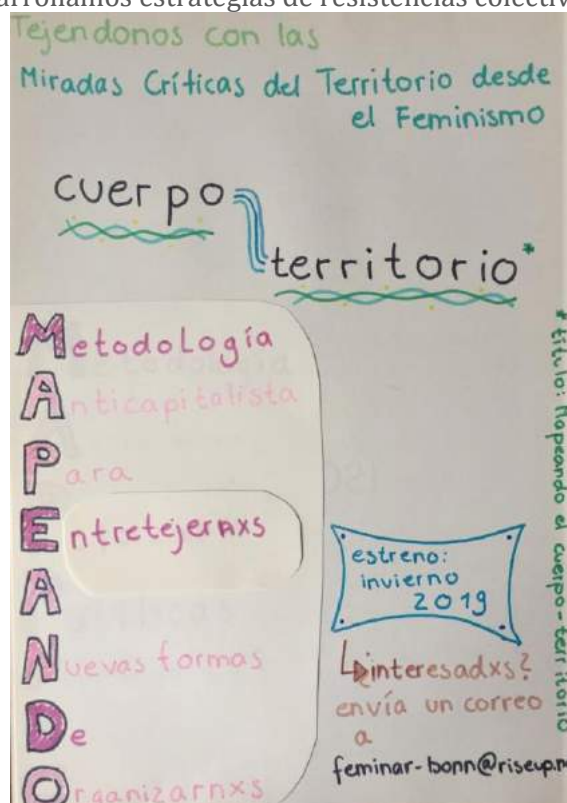 estrategias de resistencias
Tejendonos con las
Miradas Críticas del Territorio desde
el Feminismo
cuerpo
territorio*
Metodología
Anticapitalista
Para
Entretejernxs
A
Nuevas formas
De
Organizarnxs
estreno:
invierno
2019
interesadxs?
envía un correo
a
feminar-bonn@riseup.n
* título: Mapeando el cuerpo-territorio